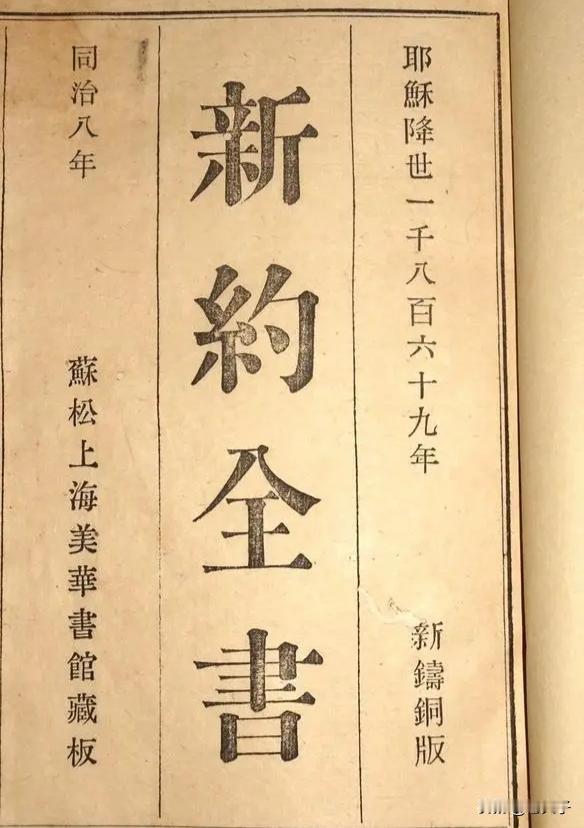 耶穌降世一千八百六十九年
新鑄銅版
新約全書
同治八年
蘇松上海美華書館藏板